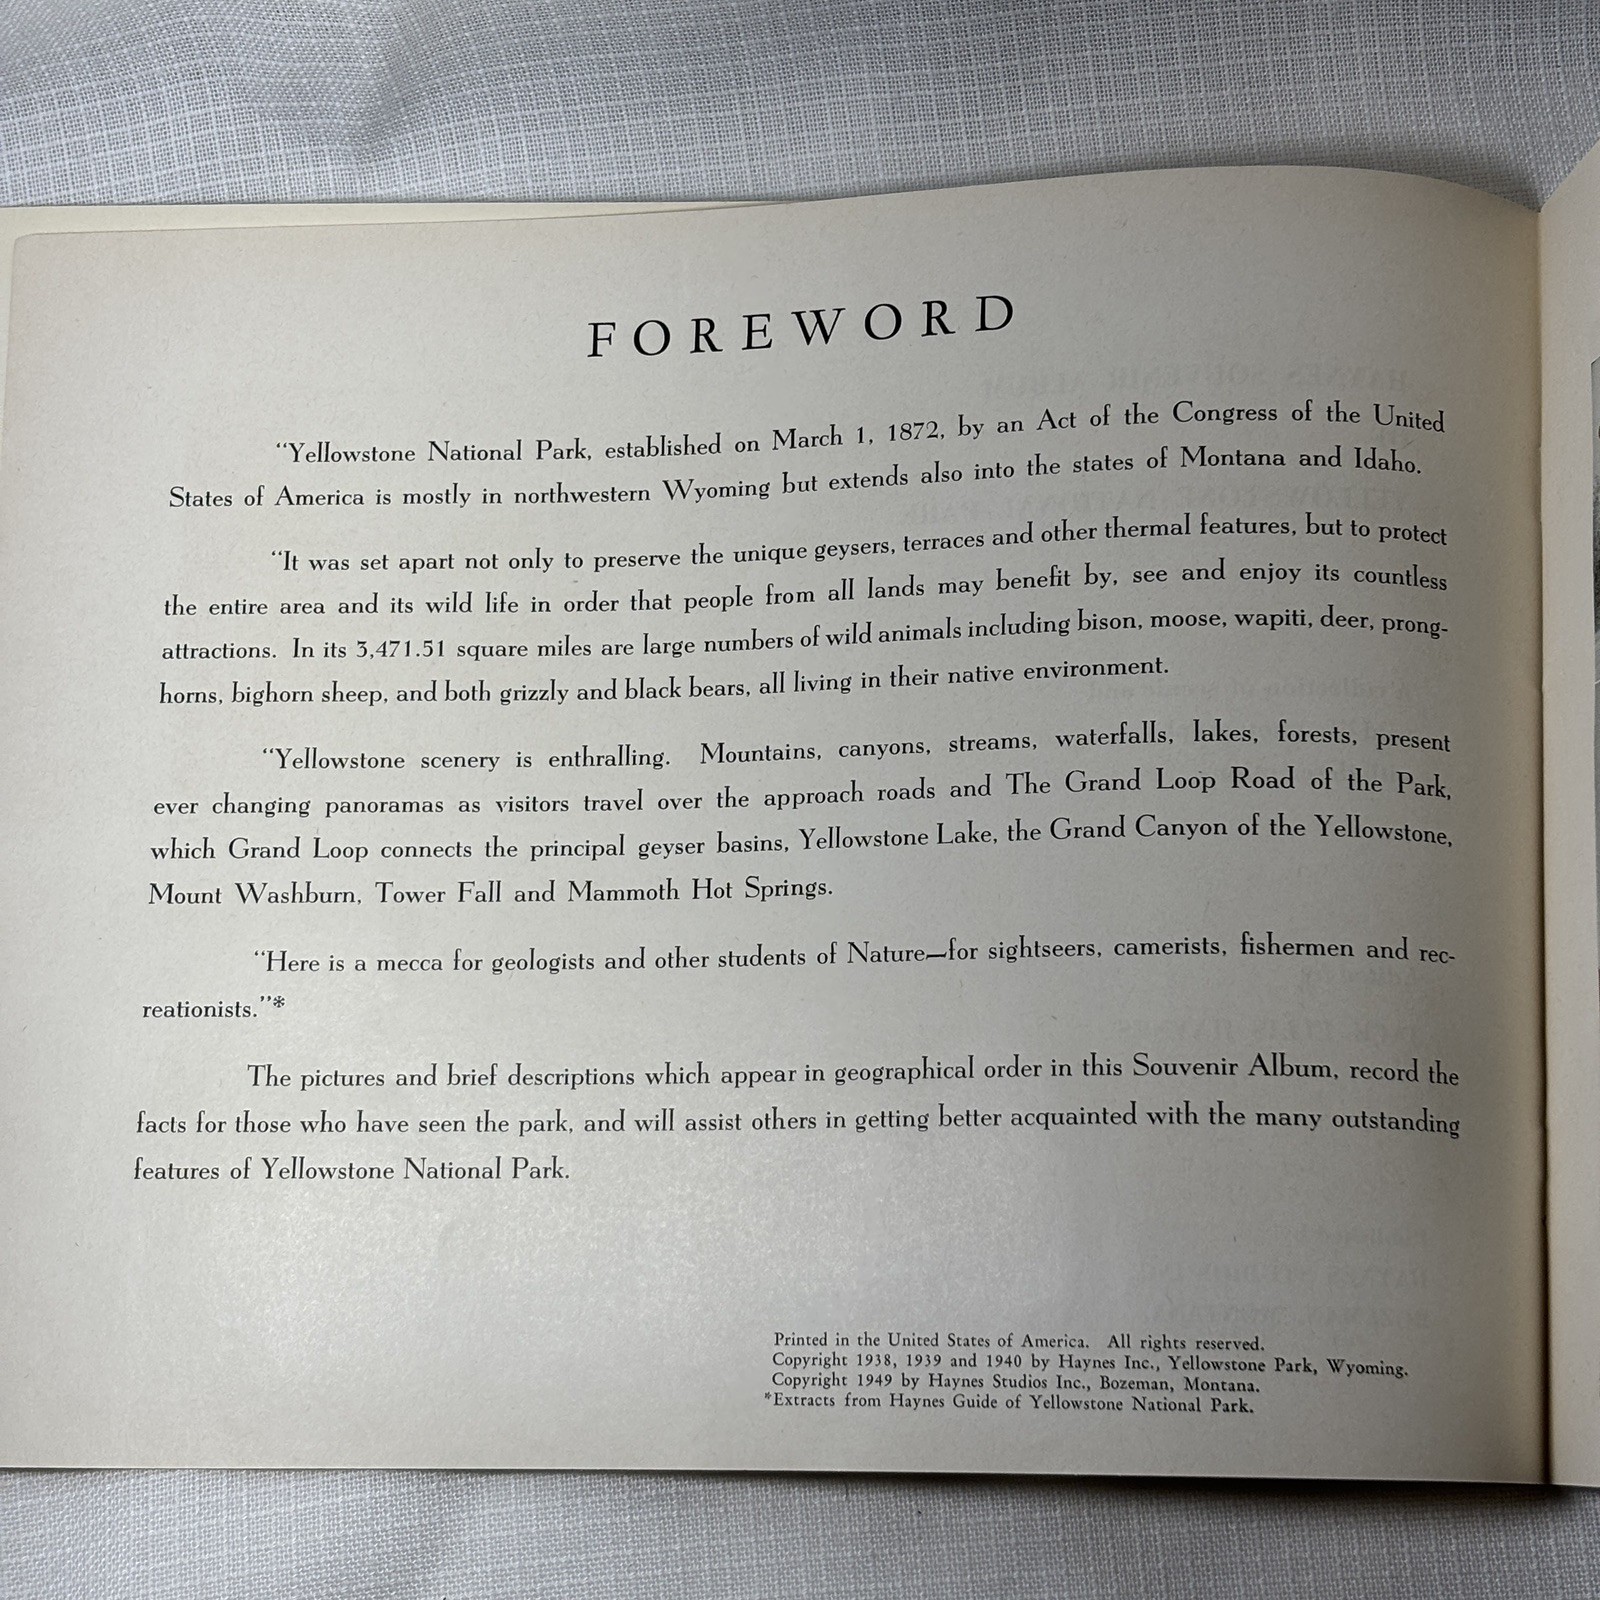 FOREWORD
"Yellowstone National Park, established on March 1, 1872, by an Act of the Congress of the United
States of America is mostly in northwestern Wyoming but extends also into the states of Montana and Idaho.
"It was set apart not only to preserve the unique geysers, terraces and other thermal features, but to protect
the entire area and its wild life in order that people from all lands may benefit by, see and enjoy its countless
attractions. In its 3,471.51 square miles are large numbers of wild animals including bison, moose, wapiti, deer, prong-
horns, bighorn sheep, and both grizzly and black bears, all living in their native environment.
"Yellowstone scenery is enthralling. Mountains, canyons, streams, waterfalls, lakes, forests, present
ever changing panoramas as visitors travel over the approach roads and The Grand Loop Road of the Park,
which Grand Loop connects the principal geyser basins, Yellowstone Lake, the Grand Canyon of the Yellowstone,
Mount Washburn, Tower Fall and Mammoth Hot Springs.
"Here is a mecca for geologists and other students of Nature—for sightseers, camerists, fishermen and rec-
reationists."*
The pictures and brief descriptions which appear in geographical order in this Souvenir Album, record the
facts for those who have seen the park, and will assist others in getting better acquainted with the many outstanding
features of Yellowstone National Park.
Printed in the United States of America. All rights reserved.
Copyright 1938, 1939 and 1940 by Haynes Inc., Yellowstone Park, Wyoming.
Copyright 1949 by Haynes Studios Inc., Bozeman, Montana.
*Extracts from Haynes Guide of Yellowstone National Park.